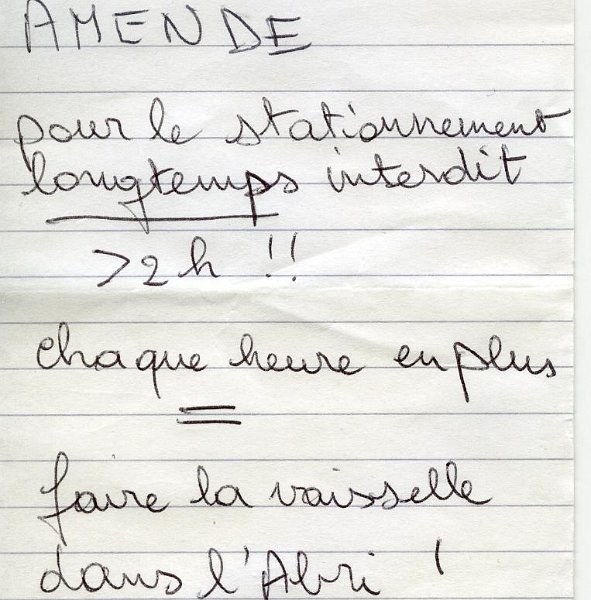 AMENDE
pour le stationnement
longtemps interdit
>2h !!
chaque heure en plus
=
faire la vaisselle
dans l'Abri !